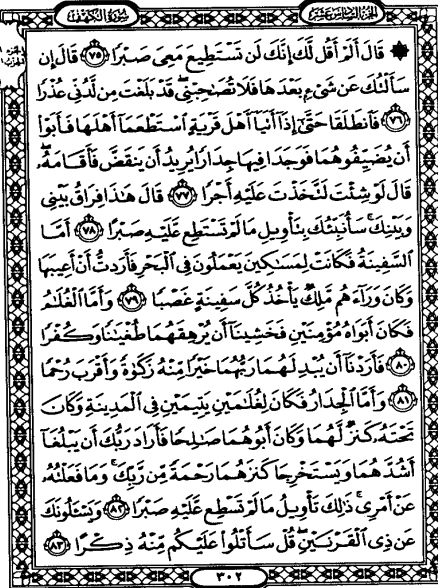 سُورَةُ الكَهْفِ الجُزْءُ السَّادِسَ عَشَرَ
۞ قَالَ أَلَمْ أَقُل لَّكَ إِنَّكَ لَن تَسْتَطِيعَ مَعِىَ صَبْرًا ٧٥ قَالَ إِن
سَأَلْتُكَ عَن شَىْءٍۭ بَعْدَهَا فَلَا تُصَٰحِبْنِى ۖ قَدْ بَلَغْتَ مِن لَّدُنِّى عُذْرًا
٧٦ فَٱنطَلَقَا حَتَّىٰٓ إِذَآ أَتَيَآ أَهْلَ قَرْيَةٍ ٱسْتَطْعَمَآ أَهْلَهَا فَأَبَوْا۟
أَن يُضَيِّفُوهُمَا فَوَجَدَا فِيهَا جِدَارًا يُرِيدُ أَن يَنقَضَّ فَأَقَامَهُۥ ۖ
قَالَ لَوْ شِئْتَ لَتَّخَذْتَ عَلَيْهِ أَجْرًا ٧٧ قَالَ هَٰذَا فِرَاقُ بَيْنِى
وَبَيْنِكَ ۚ سَأُنَبِّئُكَ بِتَأْوِيلِ مَا لَمْ تَسْتَطِع عَّلَيْهِ صَبْرًا ٧٨ أَمَّا
ٱلسَّفِينَةُ فَكَانَتْ لِمَسَٰكِينَ يَعْمَلُونَ فِى ٱلْبَحْرِ فَأَرَدتُّ أَنْ أَعِيبَهَا
وَكَانَ وَرَآءَهُم مَّلِكٌ يَأْخُذُ كُلَّ سَفِينَةٍ غَصْبًا ٧٩ وَأَمَّا ٱلْغُلَٰمُ
فَكَانَ أَبَوَاهُ مُؤْمِنَيْنِ فَخَشِينَآ أَن يُرْهِقَهُمَا طُغْيَٰنًا وَكُفْرًا
٨٠ فَأَرَدْنَآ أَن يُبْدِلَهُمَا رَبُّهُمَا خَيْرًا مِّنْهُ زَكَوٰةً وَأَقْرَبَ رُحْمًا
٨١ وَأَمَّا ٱلْجِدَارُ فَكَانَ لِغُلَٰمَيْنِ يَتِيمَيْنِ فِى ٱلْمَدِينَةِ وَكَانَ
تَحْتَهُۥ كَنزٌ لَّهُمَا وَكَانَ أَبُوهُمَا صَٰلِحًا فَأَرَادَ رَبُّكَ أَن يَبْلُغَآ
أَشُدَّهُمَا وَيَسْتَخْرِجَا كَنزَهُمَا رَحْمَةً مِّن رَّبِّكَ ۚ وَمَا فَعَلْتُهُۥ
عَنْ أَمْرِى ۚ ذَٰلِكَ تَأْوِيلُ مَا لَمْ تَسْطِع عَّلَيْهِ صَبْرًا ٨٢ وَيَسْـَٔلُونَكَ
عَن ذِى ٱلْقَرْنَيْنِ ۖ قُلْ سَأَتْلُوا۟ عَلَيْكُم مِّنْهُ ذِكْرًا ٨٣
٣٠٢